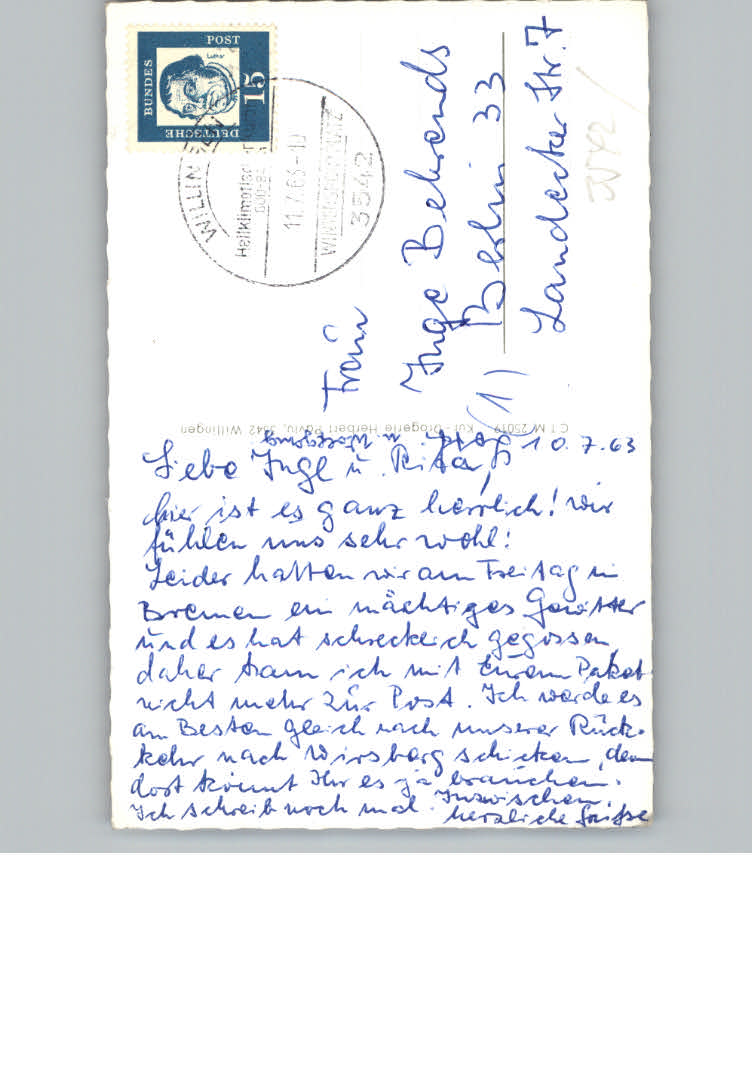 DEUTSCHE
BUNDES
POST
Luther
15
WILLINGEN
Heilklimatischer
600-84
11.7.63-10
WINTERSPORTPLATZ
3542
Frau
Inge Behrends
(1) Berlin 33
Landecker Str. 7
C T M 25019 Kur-Drogerie Herbert 3542 Willingen
10.7.63
Liebe Inge u. Rita,
hier ist es ganz herrlich! Wir
fühlen uns sehr wohl!
Leider hatten wir am Freitag in
Bremen ein mächtiges Gewitter
und es hat schrecklich gegossen,
daher kam ich mit Eurem Paket
nicht mehr zur Post. Ich werde es
am Besten gleich nach unserer Rück-
kehr nach Wirsberg schicken, denn
dort könnt Ihr es ja brauchen.
Ich schreib noch mal. Inzwischen
herzliche Grüße
u. Wolfgang